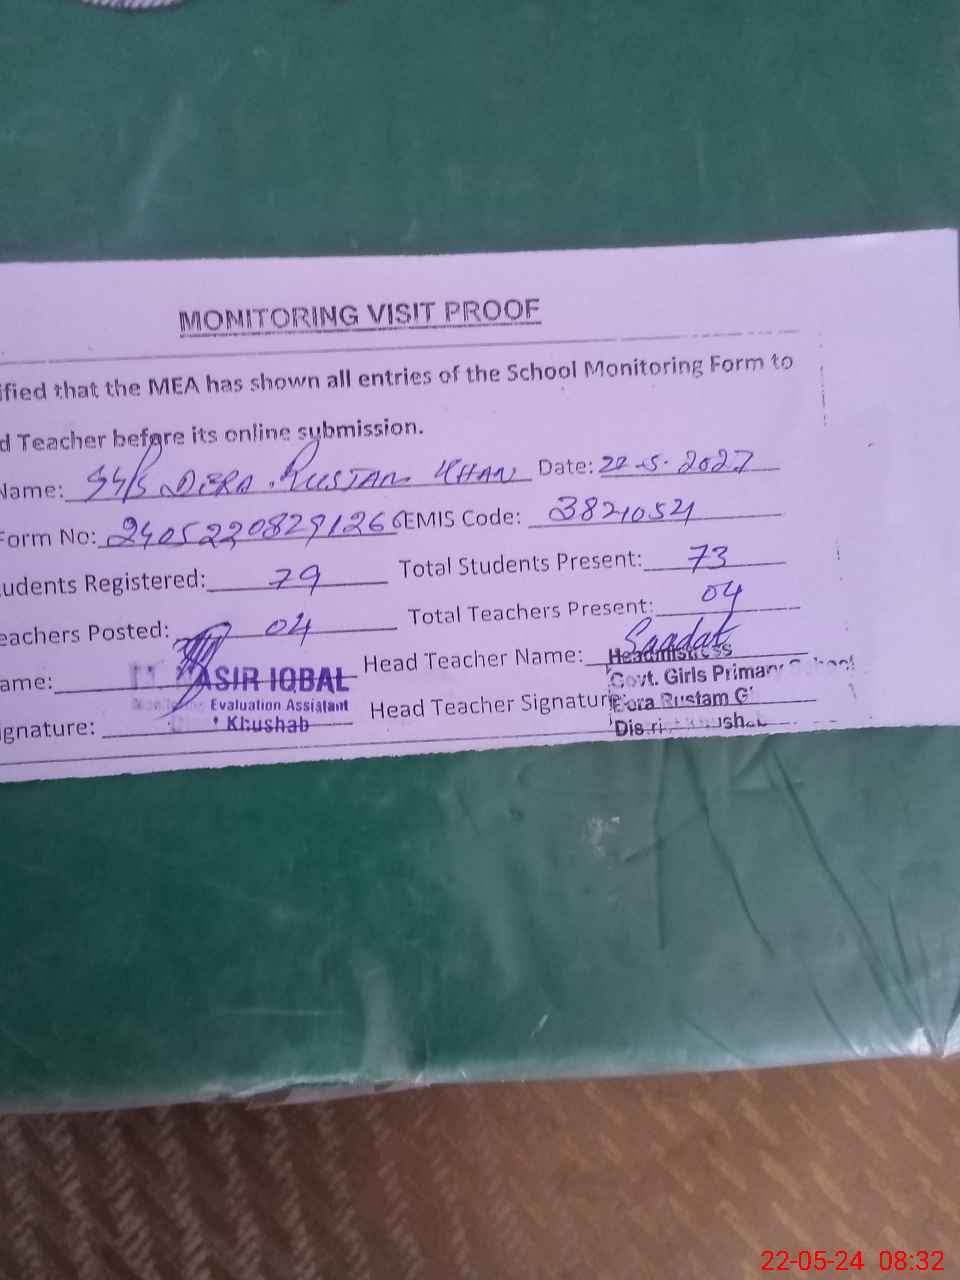 MONITORING VISIT PROOF
ified that the MEA has shown all entries of the School Monitoring Form to
d Teacher before its online submission.
Name: DERA RUSTAM KHAN Date: 22-5-2027
Form No: 24052208291266 EMIS Code: 38210521
udents Registered: 79 Total Students Present: 73
eachers Posted: 04 Total Teachers Present: 04
ame: ASIR IQBAL Head Teacher Name: Saadat
Evaluation Assistant
Khushab
Headmistress
Govt. Girls Primary School
Rustam
ignature: Head Teacher Signature
22-05-24 08:32